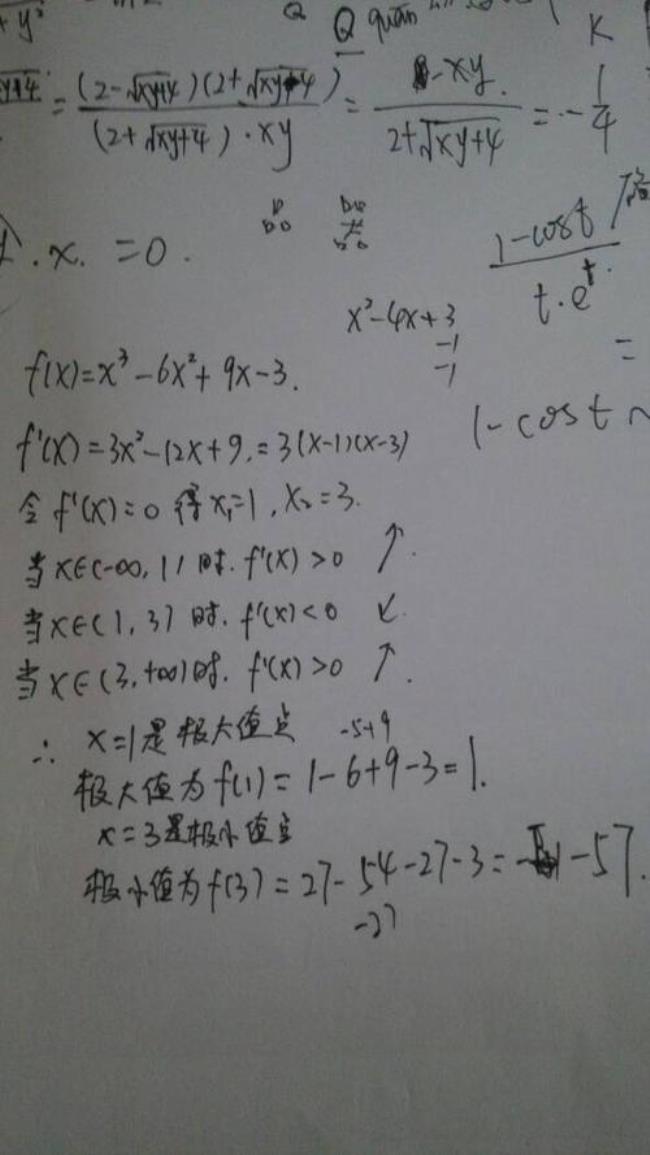 + y²
Q Q quán K
= (2-√xy+4)(2+√xy+4) / (2+√xy+4)·xy = -xy / 2+√xy+4 = -1/4
·x. = 0.
1-cost / t·e^t
x²-4x+3
-1
-1
=
f(x)=x³-6x²+9x-3.
1-cost ~
f'(x)=3x²-12x+9.=3(x-1)(x-3)
令f'(x)=0 得x₁=1,x₂=3.
当x∈(-∞,1)时.f'(x)>0 ↑.
当x∈(1,3)时.f'(x)<0 ↙.
当x∈(3,+∞)时.f'(x)>0 ↑.
∴ x=1是极大值点 -5+9
极大值为f(1)=1-6+9-3=1.
x=3是极小值点
极小值为f(3)=27-54-27-3=-57.
-27